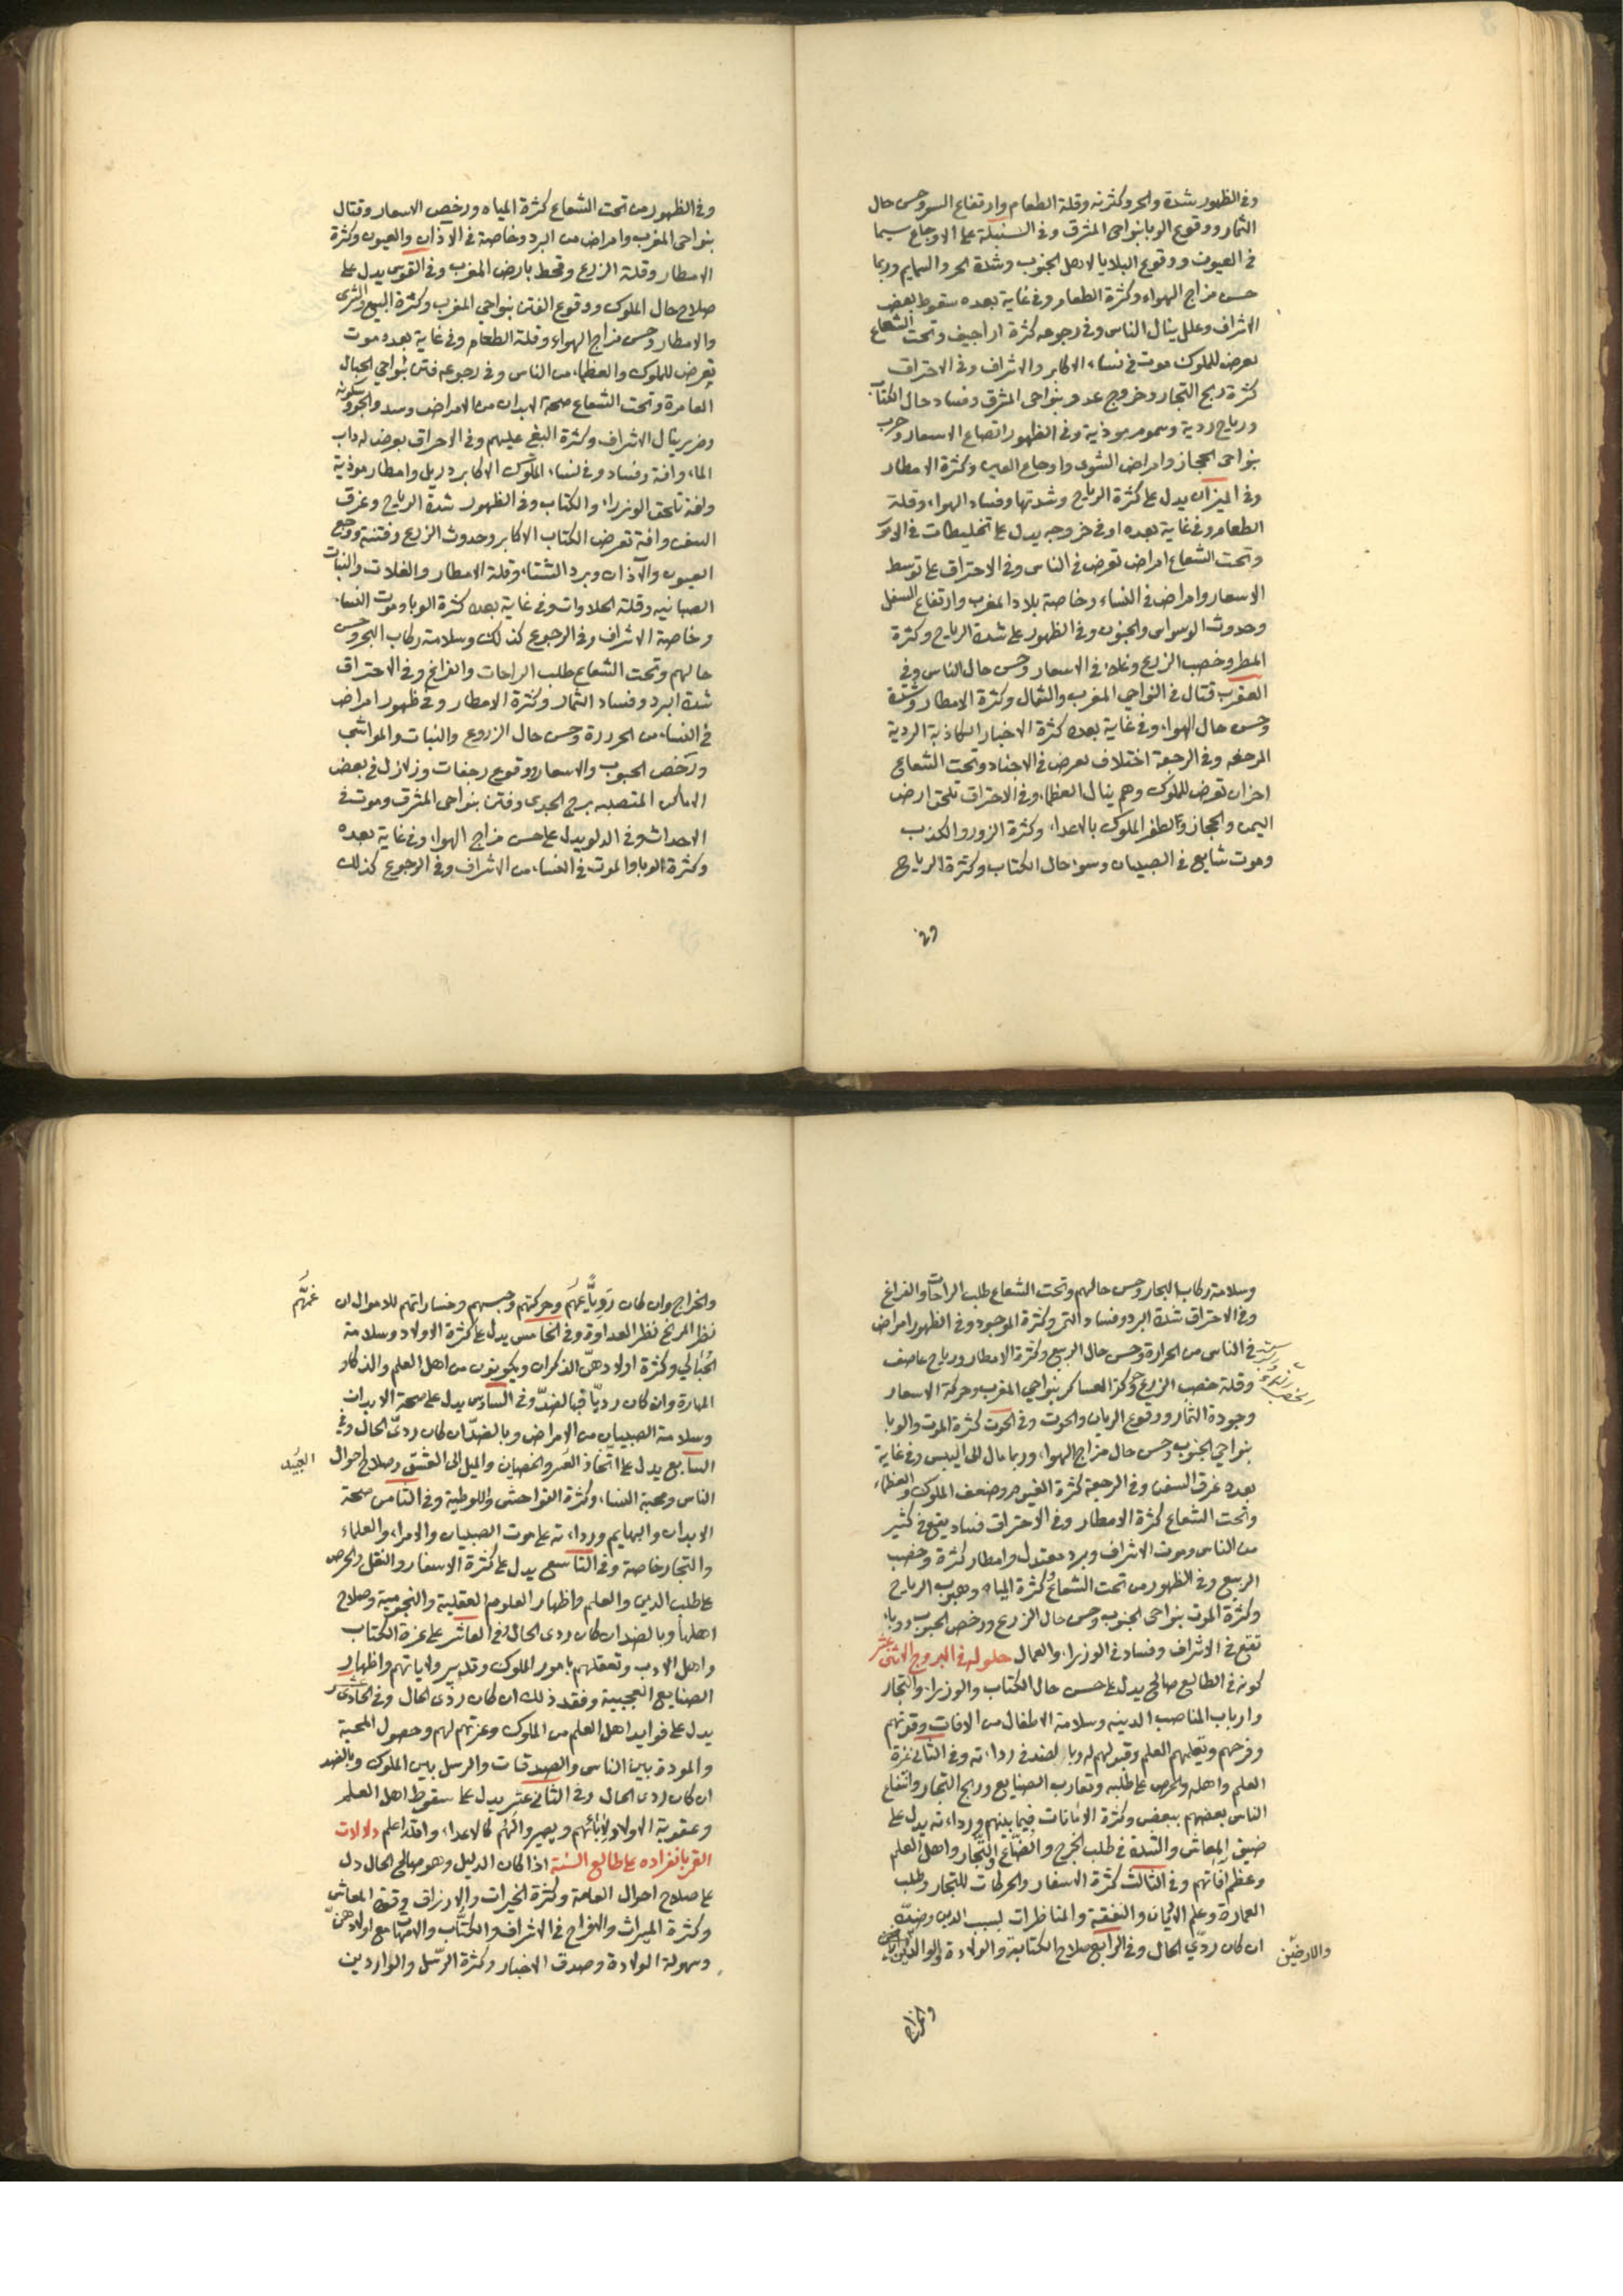 وفي الظهور شدة والحر وكثرته وقلة الطعام وارتفاع السعر وحسن حال
الثمار ووقوع الوبا بنواحي المشرق وفي السنبلة على الاوجاع سيما
في العيون ووقوع البلايا لاهل الجنوب وشدة الحر والسمايم وربما
حسن مزاج الهواء وكثرة الطعام وفي غاية بعده سقوط بعض
الاشراف وعلل ينال الناس وفي رجوعه كثرة اراجيف وتحت الشعاع
يعرض للملوك موت في نساء الاكابر والاشراف وفي الاحتراق
كثرة ربح التجار وخروج عدو بنواحي المشرق وفساد حال الكتاب
ورياح ردية وسموم موذية وفي الظهور اتضاع الاسعار وحرب
بنواحي الحجاز وامراض الشوى واوجاع العين وكثرة الامطار
وفي الميزان يدل على كثرة الرياح وشدتها وفساد الهواء وقلة
الطعام وفي غاية بعده او في خروجه يدل على تخليطات في الامور
وتحت الشعاع امراض تعرض في الناس وفي الاحتراق على توسط
الاسعار وامراض في النساء وخاصة بلاد المغرب وارتفاع السفل
وحدوث الوسواس والجنون وفي الظهور على شدة الرياح وكثرة
المطر وخصب الزرع وغلاء في الاسعار وحسن حال الناس وفي
العقرب قتال في النواحي المغرب والشمال وكثرة الامطار وشدة
وحسن حال الهواء وفي غاية بعده كثرة الاخبار الكاذبة الردية
المرجفه وفي الرجعة اختلاف يعرض في الاجناد وتحت الشعاع
احزان تعرض للملوك وهم ينال العظماء وفي الاحتراق تلحق ارض
اليمن والحجاز والظفر الملوك بالاعداء وكثرة الزور والكذب
وموت شايع في الصبيان وسوء حال الكتاب وكثرة الرياح
وفي
وفي الظهور من تحت الشعاع كثرة المياه ورخص الاسعار وقتال
بنواحي المغرب وامراض من البرد وخاصة في الاذان والعيون وكثرة
الامطار وقلة الزرع وقحط بارض المغرب وفي القوس يدل على
صلاح حال الملوك ووقوع الفتن بنواحي المغرب وكثرة البيع والشرى
والامطار وحسن مزاج الهواء وقلة الطعام وفي غاية بعده موت
تعرض للملوك والعظماء من الناس وفي رجوعه فتن بنواحي الجبال
العامرة وتحت الشعاع صحة الابدان من الامراض وسد والحر وسكونه
وضر ينال الاشراف وكثرة البغي عليهم وفي الاحراق يعرض لدواب
الماء وافة وفساد وفي نساء الملوك الاكابر وامطار موذية
وافة تلحق الوزراء والكتاب وفي الظهور شدة الرياح وغرق
السفن وافة تعرض الكتاب الاكابر وحدوث الزرع وفتنة ووجع
العيون والآذان وبرد الشتاء وقلة الامطار والغلات والنبات
وقلة الحلاوات وفي غاية بعده كثرة الوبا وموت النساء
وخاصة الاشراف وفي الرجوع كذلك وسلامة ركاب البحر وحسن
حالهم وتحت الشعاع طلب الراحات والفراغ وفي الاحتراق
شدة البرد وفساد الثمار وكثرة الامطار وفي ظهور امراض
في النساء من الحرارة وحسن حال الزروع والنبات والمواشي
ورخص الحبوب والاسعار ووقوع رجفات وزلازل في بعض
الاماكن المتصلة برج الجدي وفتن بنواحي المشرق وموت في
الاحداث وفي الدلو يدل على حسن مزاج الهواء وفي غاية بعده
وكثرة الوبا والموت في النساء من الاشراف وفي الرجوع كذلك
وسلامة ركاب البحار وحسن حالهم وتحت الشعاع طلب الراحات والفراغ
وفي الاحتراق شدة البرد وفساد الثمر وكثرة الموجود وفي الظهور امراض
في الناس من الحرارة وحسن حال الربيع وكثرة الامطار ورياح عاصف
وقلة خصب الزرع وحركة العساكر بنواحي المغرب وحركة الاسعار
وجودة الثمار ووقوع الربان والحوت وفي الحوت كثرة الموت والوبا
بنواحي الجنوب وحسن حال مزاج الهواء وربما مال الى اليبس وفي غاية
بعده غرق السفن وفي الرجعة كثرة الغيوم وضعف الملوك والعظماء
وتحت الشعاع كثرة الامطار وفي الاحتراق فساد يقع في كثير
من الناس وموت الاشراف وبرد معتدل وامطار كثرة وخصب
الربيع وفي الظهور من تحت الشعاع وكثرة المياه وهبوب الرياح
وكثرة الموت بنواحي الجنوب وحسن حال الزرع ورخص الحبوب ووباء
تقع في الاشراف وفساد في الوزراء والعمال حلوله في البروج الاثنى عشر
كونه في الطالع صالح يدل على حسن حال الكتاب والوزراء والتجار
وارباب المناصب الدينه وسلامة الاطفال من الافات وقوتهم
وفرحهم وتعليهم العلم وقبولهم له وبالضد في رداءته وفي الثاني عزة
العلم واهله والحرص على طلبه وتعارب الصنايع وربح التجار وانتفاع
الناس بعضهم ببعض وكثرة الامانات فيما بينهم ورداءته يدل على
ضيق المعاش والشدة في طلب الخرج والصناع والتجار واهل العلم
وعظم آفاتهم وفي الثالث كثرة الاسفار والحركات للتجار وطلب
العمارة وعلم الاديان والفقه والمناظرات بسبب الدين وضده
ان كان ردي الحال وفي الرابع صلاح الكتابة والولادة والوالدين
والارضين
والخراج
والخراج وان كان رديا غمهم وحركتهم وحبسهم وخساراتهم للاموال ان
غمهم
نظر المريخ نظر العداوة وفي الخامس يدل على كثرة الاولاد وسلامة
الحبالي وكثرة اولادهن الذكران ويكونون من اهل العلم والذكاء
المهارة وان كان رديا فبالضد وفي السادس يدل على صحة الابدان
وسلامة الصبيان من الامراض وبالضد ان كان ردي الحال وفي
السابع يدل على اتخاذ والخصيان والميل الى العشق وصلاح احوال
العبيد
الناس ومحبة النساء وكثرة الفواحش واللوطية وفي الثامن صحة
الابدان والبهايم ورداءته على موت الصبيان والامراء والعلماء
والتجار خاصة وفي التاسع يدل على كثرة الاسفار والنقل والحرص
على طلب الدين والعلم واظهار العلوم العقلية والنجومية وصلاح
اهلها وبالضد ان كان ردي الحال وفي العاشر على عزة الكتاب
واهل الادب وتعقلهم بامور الملوك وتدبير ولاياتهم واظهار
الصنايع العجيبة وفقد ذلك ان كان ردي الحال وفي الحادي عشر
يدل على فوايد اهل العلم من الملوك وعزتهم لهم وحصول المحبة
والمودة بين الناس والصدقات والرسل بين الملوك وبالضد
ان كان ردي الحال وفي الثاني عشر يدل على سقوط اهل العلم
وعقوبة الاولاد لابائهم ويصيروا لهم كالاعداء والله اعلم دلالات
القمر بانفراده على طالع السنة اذا كان الدليل وهو صالح الحال دل
على صلاح احوال العامة وكثرة الخيرات والارزاق وقوة المعاش
وكثرة الميراث والافراح في الاشراف والكتاب والامهات مع اولادهن
وسهولة الولادة وصدق الاخبار وكثرة الرسل والواردين